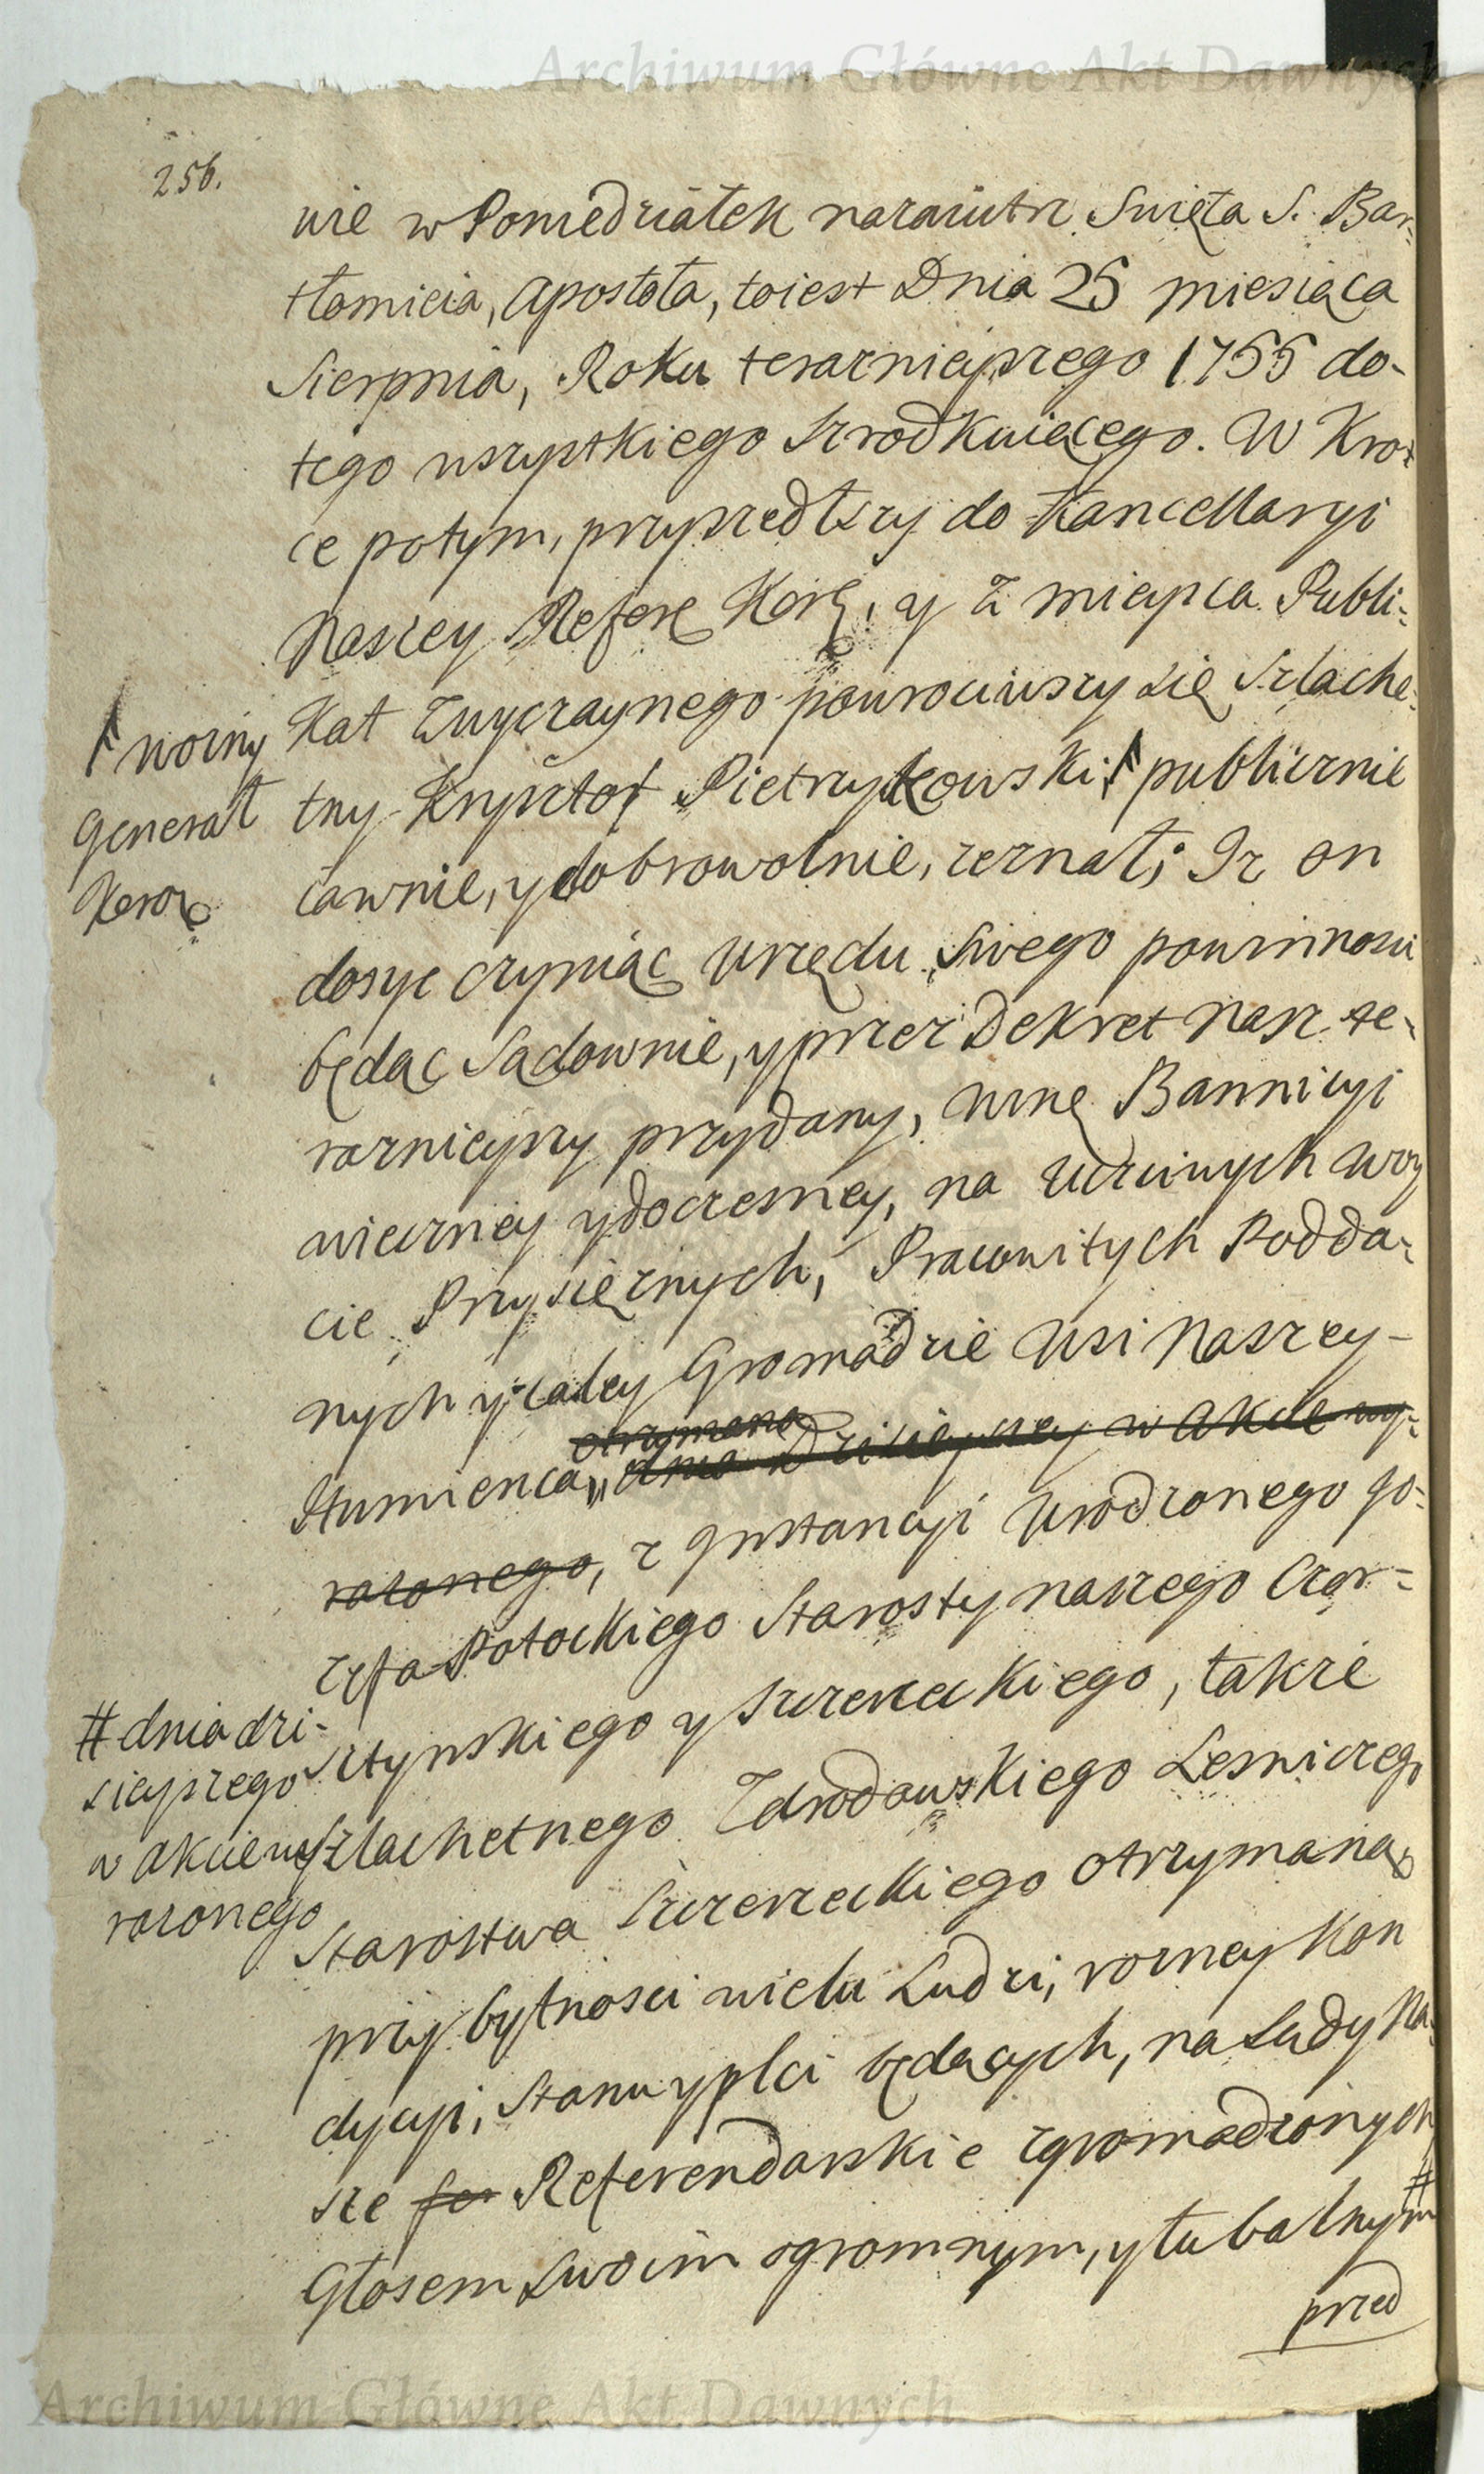 Archiwum Główne Akt Dawnych
256.
nie w Poniedziałek nazaiutrz Swięta S. Bar-
tłomieia, Apostoła, toiest Dnia 25 miesiąca
Sierpnia, Roku terazniejszego 1755 do-
tego wszystkiego szrodkuiącego. W Krot-
ce potym, przyszedłszy do Kancellaryi
Naszey Refere Kor, y z mieysca Publi-
kat zwyczaynego powrociwszy się Szlache-
tny Krysztof Pietrzykowski publicznie
iawnie, y dobrowolnie, zeznał; Iz on
dosyc czyniąc Urzędu swego powinnosci
będąc Sądownie, y przez Dekret Nasz te-
raznieyszy przydany, winę Bannicyi
wieczney y doczesney, na Uczciwych Woy
cie Przysięznych, Pracowitych Podda-
nych y całey Gromadzie Wsi Naszey
Humienca, otrzymana dnia Dzisieyszey w Akcie wy-
razonego, z Instancyi Urodzonego Jo-
zefa Potockiego Starosty naszego Czor-
sztynskiego y Szczerzeckiego, takze
Szlachetnego Zdrodowskiego Lesniczego
Starostwa Szczerzeckiego otrzymaną
przy bytnosci wielu Ludzi, rozney Kon
dycyi, Stanu y płci będących, na Sądy Na-
sze Referendarskie zgromadzonych
Głosem swoim ogromnym, y tubalnym #
przed
Woźny
Generał
Koron
# dnia dzi-
sieyszego
w akcie wy-
razonego
Archiwum Główne Akt Dawnych